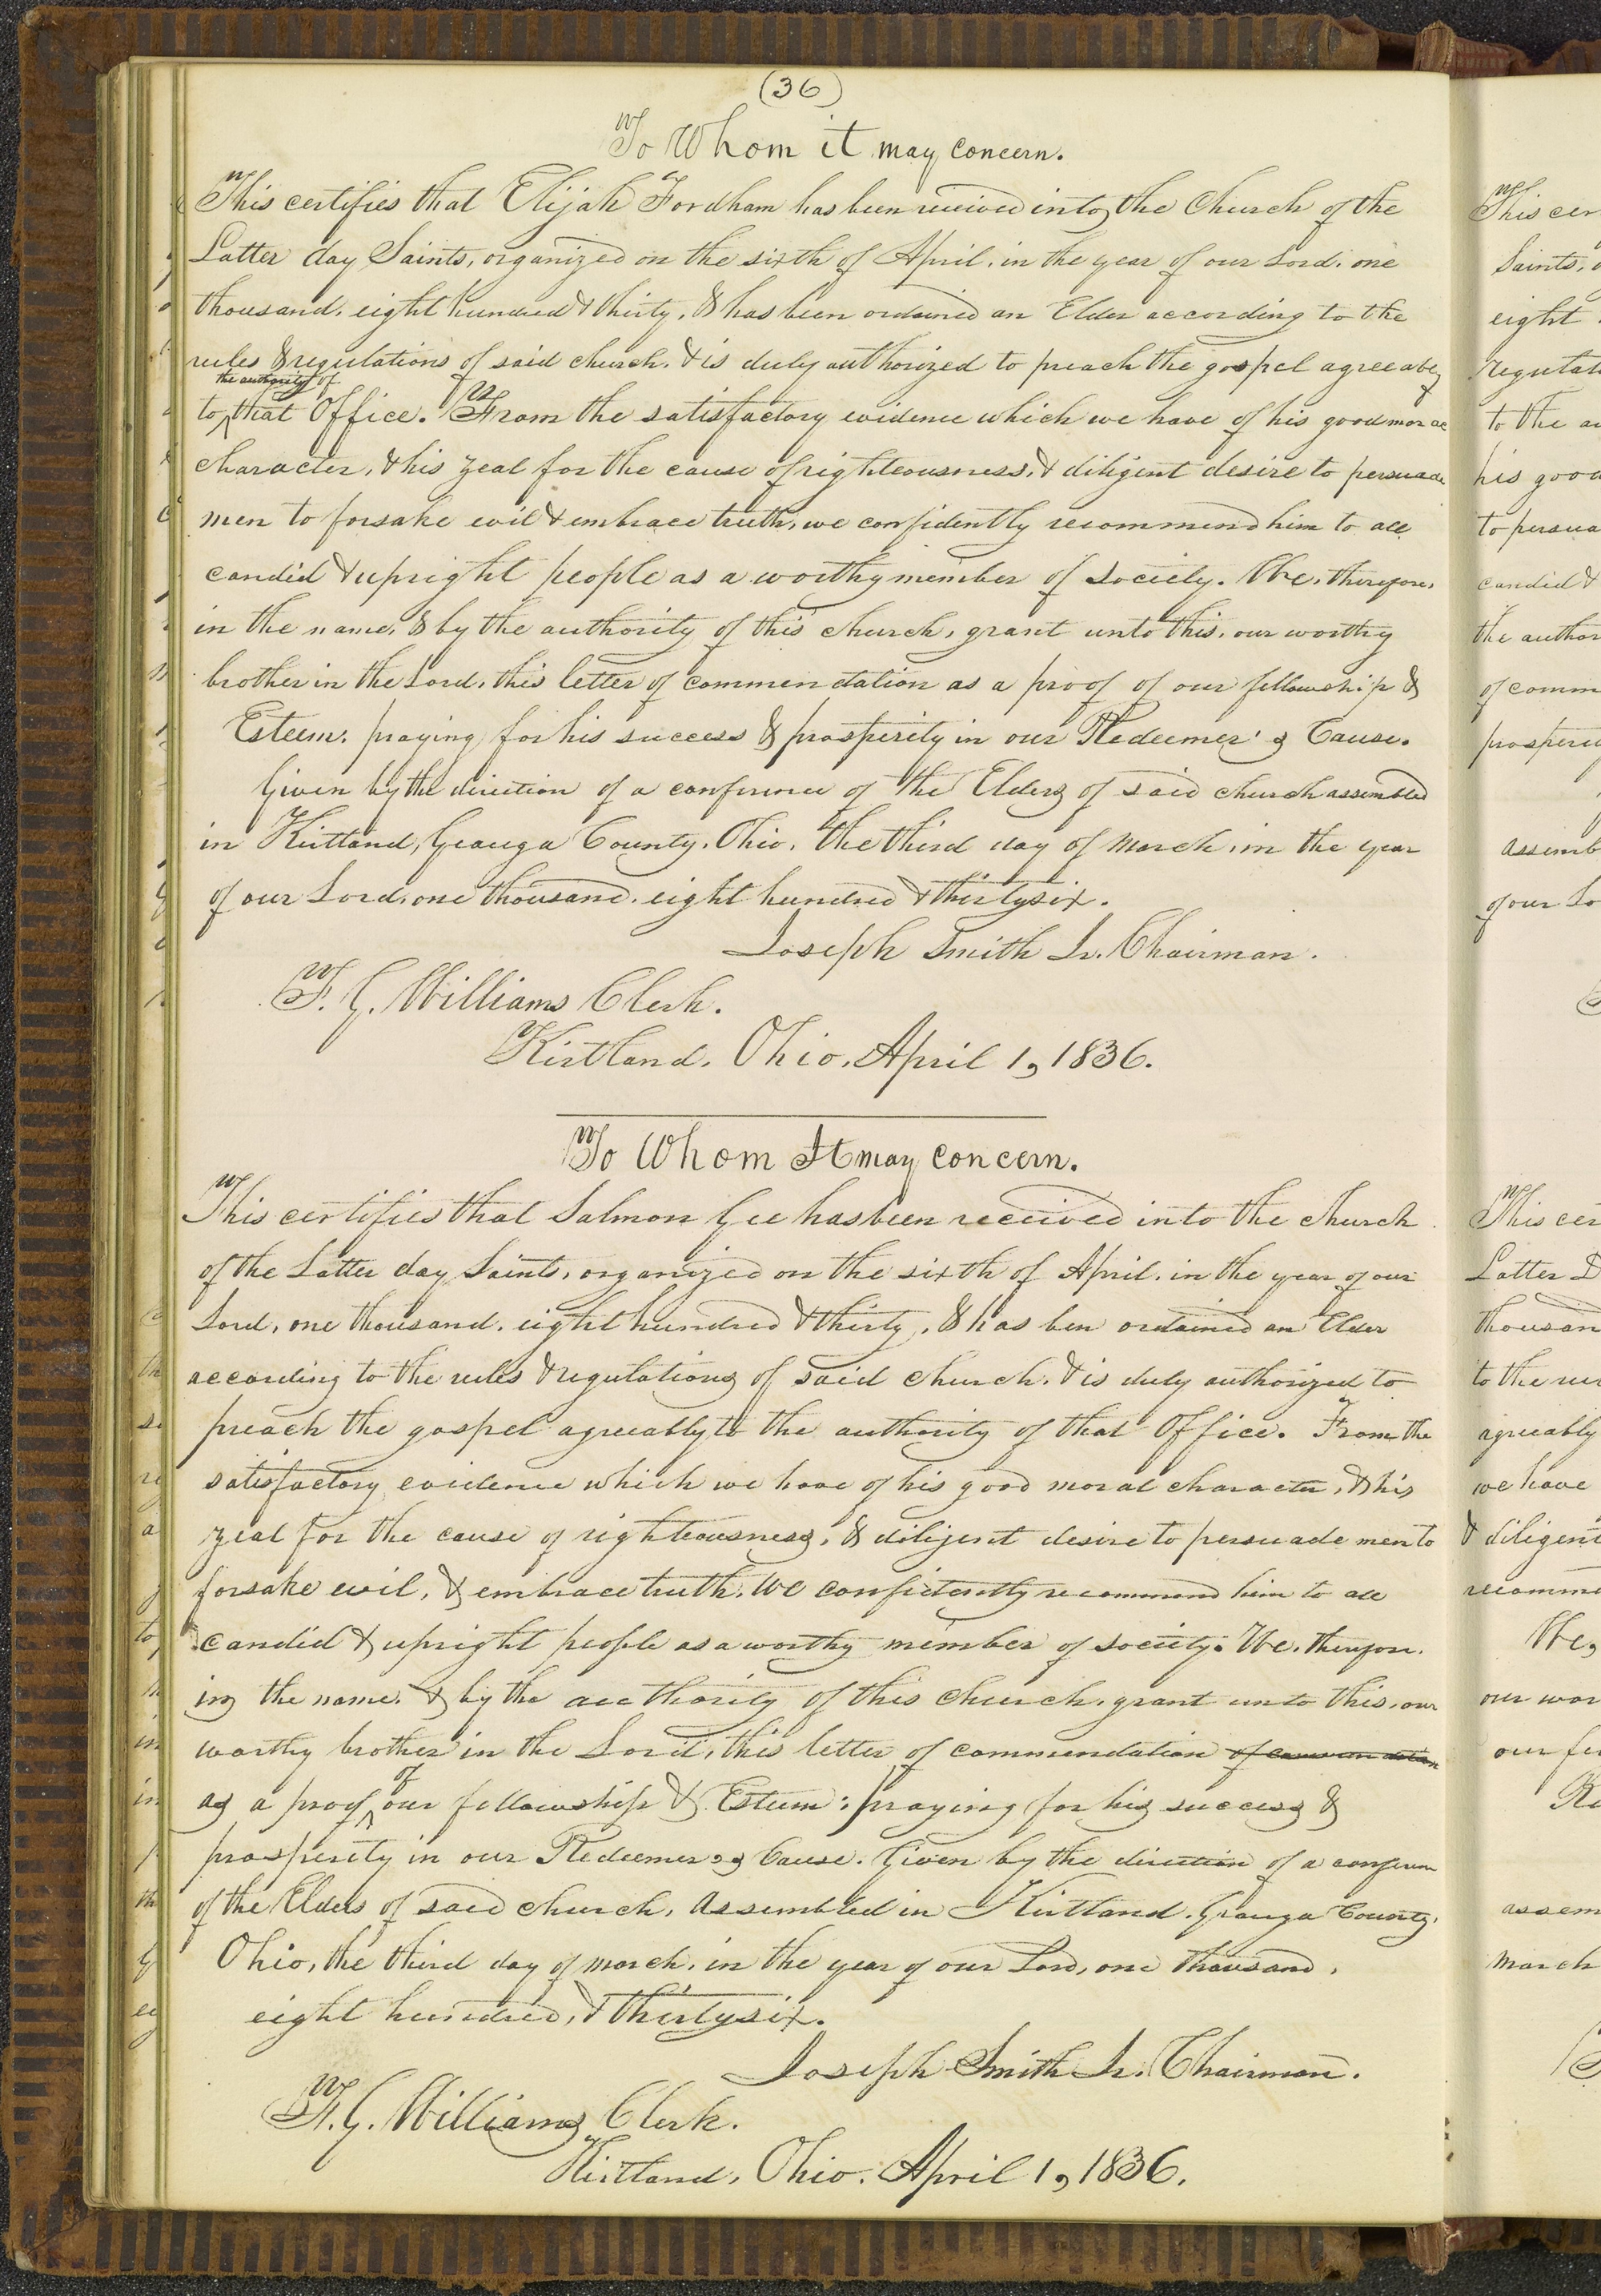 (36)
To Whom it may concern.
This certifies that Elijah Fordham has been received into the Church of the
Latter day Saints, organized on the sixth of April, in the year of our Lord, one
thousand, eight hundred & thirty, & has been ordained an Elder according to the
rules & regulations of said church, & is duly authorized to preach the gospel agreeably
the authority of
to that Office. From the satisfactory evidence which we have of his good moral
character, & his zeal for the cause of righteousness, & diligent desire to persuade
men to forsake evil & embrace truth, we confidently recommend him to all
candid & upright people as a worthy member of society. We, therefore,
in the name, & by the authority of this church, grant unto this, our worthy
brother in the Lord, this letter of commendation as a proof of our fellowship &
Esteem: praying for his success & prosperity in our Redeemer's Cause.
Given by the direction of a conference of the Elders of said church assembled
in Kirtland, Geauga County, Ohio, the third day of March, in the year
of our Lord, one thousand, eight hundred & thirtysix.
Joseph Smith Jr. Chairman.
F. G. Williams Clerk.
Kirtland, Ohio, April 1, 1836.
To Whom It may concern.
This certifies that Salmon Gee has been received into the church
of the Latter day Saints, organized on the sixth of April, in the year of our
Lord, one thousand, eight hundred & thirty, & has ben ordained an Elder
according to the rules & regulations of said church, & is duly authorized to
preach the gospel agreeably to the authority of that Office. From the
satisfactory evidence which we have of his good moral character, & his
zeal for the cause of righteousness, & diligent desire to persuade men to
forsake evil, & embrace truth, we confidently recommend him to all
candid & upright people as a worthy member of society. We, therefore,
in the name, & by the authority of this church, grant unto this, our
worthy brother in the Lord, this letter of commendation of commendation
of
as a proof our fellowship & Esteem: praying for his success &
prosperity in our Redeemer's Cause. Given by the direction of a conference
of the Elders of said church, assembled in Kirtland, Geauga County,
Ohio, the third day of march, in the year of our Lord, one thousand,
eight hundred, & thirtysix.
Joseph Smith Jr. Chairman.
F. G. Williams Clerk.
Kirtland, Ohio, April 1, 1836.
This cer
Saints,
eight
regulat
to the au
his good
to persua
candid &
the author
of comm
prosperity
assemb
of our Lo
This cer
Latter D
thousan
to the ru
agreeably
we have
& diligent
recomme
We,
our wor
our fe
Re
assem
march